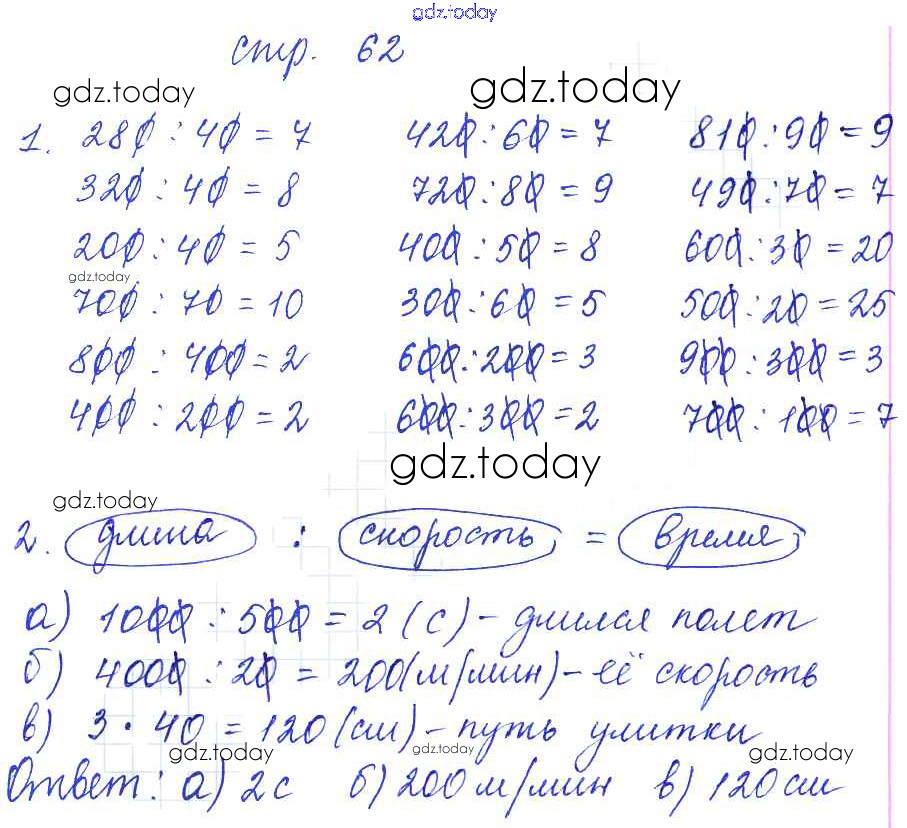 gdz.today
стр. 62
gdz.today gdz.today
1. 280 : 40 = 7 420 : 60 = 7 810 : 90 = 9
320 : 40 = 8 720 : 80 = 9 490 : 70 = 7
200 : 40 = 5 400 : 50 = 8 600 : 30 = 20
gdz.today
700 : 70 = 10 300 : 60 = 5 500 : 20 = 25
800 : 400 = 2 600 : 200 = 3 900 : 300 = 3
400 : 200 = 2 600 : 300 = 2 700 : 100 = 7
gdz.today
gdz.today
2. длина : скорость = время
а) 1000 : 500 = 2 (с) - длился полет
б) 4000 : 20 = 200 (м/мин) - её скорость
в) 3 · 40 = 120 (см) - путь улитки
gdz.today gdz.today gdz.today
Ответ: а) 2 с б) 200 м/мин в) 120 см